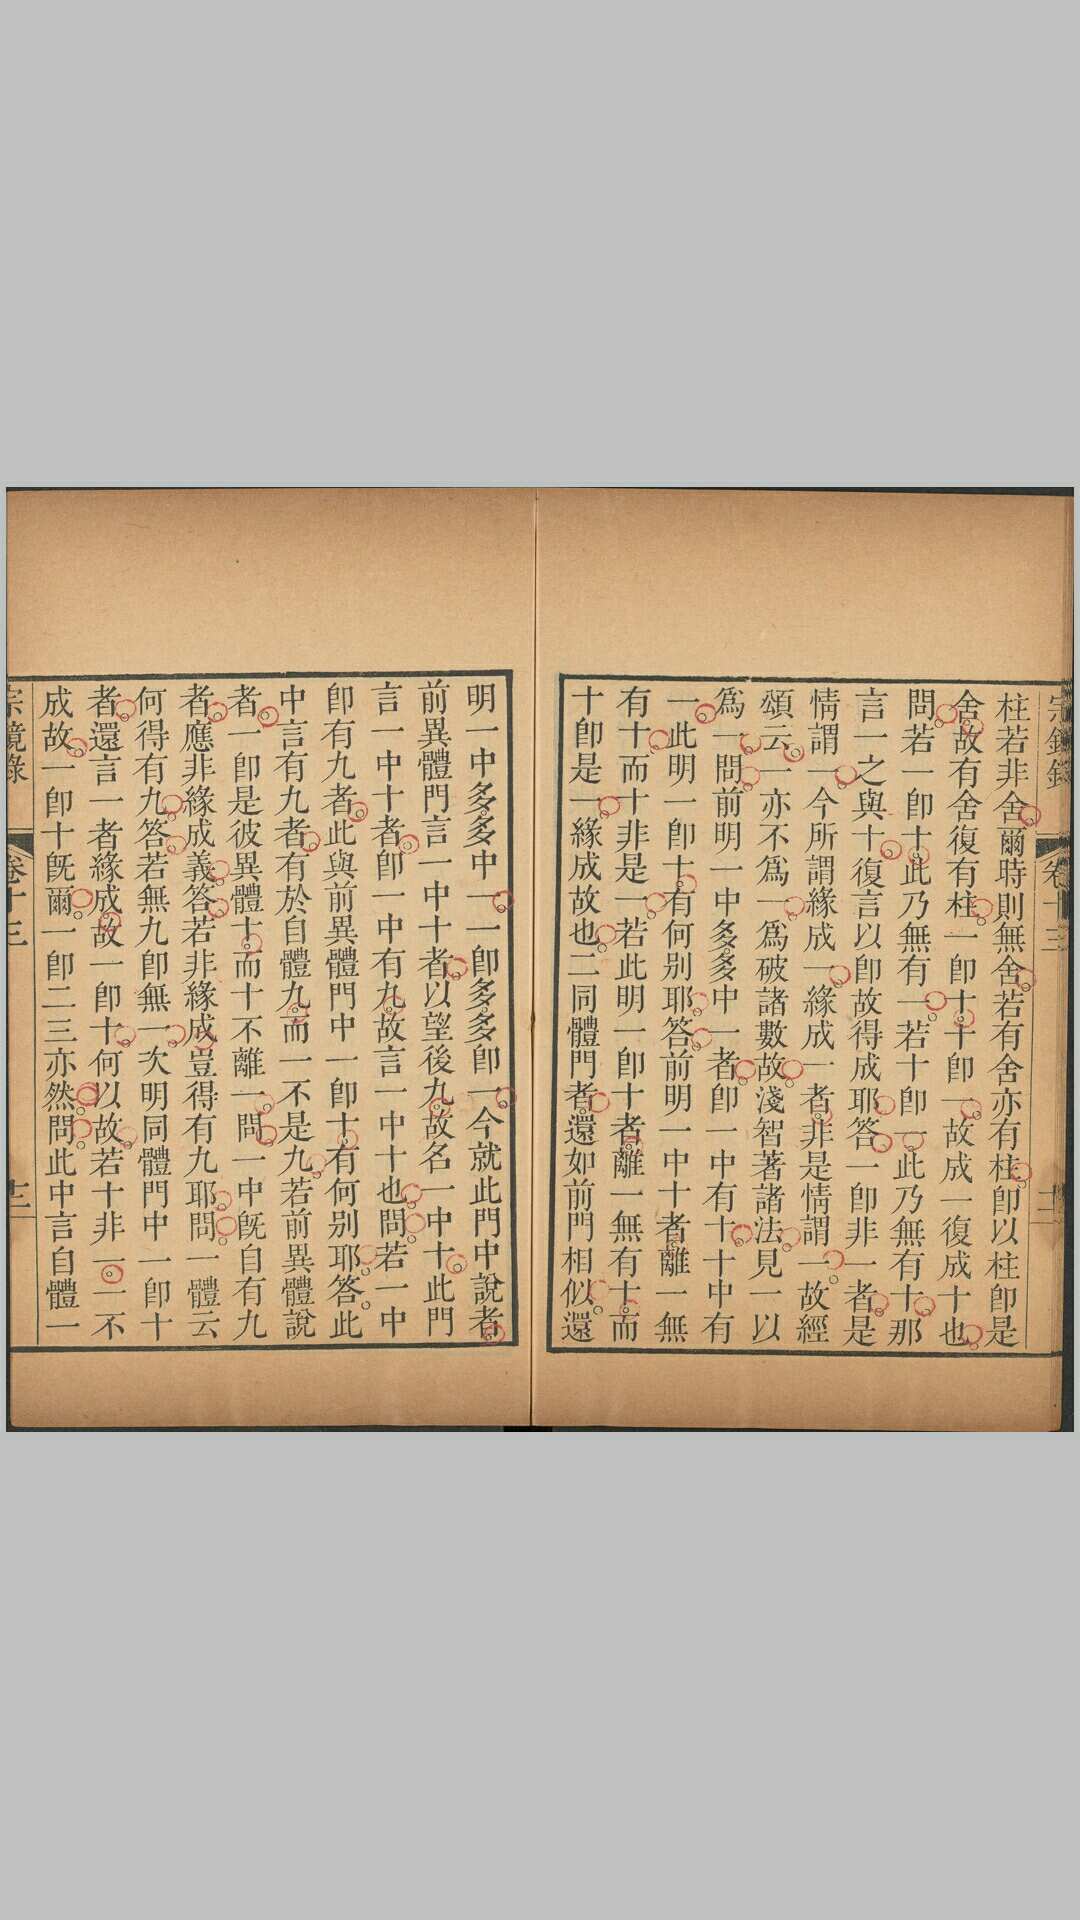 宗鏡錄 卷十三 十二
柱若非舍爾時則無舍若有舍亦有柱卽以柱卽是
舍故有舍復有柱一卽十十卽一故成一復成十也
問若一卽十此乃無有一若十卽一此乃無有十那
言一之與十復言以卽故得成耶答一卽非一者是
情謂一今所謂緣成一緣成一者非是情謂一故經
頌云一亦不為一為破諸數故淺智著諸法見一以
為一問前明一中多多中一者卽一中有十十中有
一此明一卽十有何別耶答前明一中十者離一無
有十而十非是一若此明一卽十者離一無有十而
十卽是一緣成故也二同體門者還如前門相似還
明一中多多中一一卽多多卽一今就此門中說者
前異體門言一中十者以望後九故名一中十此門
言一中十者卽一中有九故言一中十也問若一中
卽有九者此與前異體門中一卽十有何別耶答此
中言有九者有於自體九而一不是九若前異體說
者一卽是彼異體十而十不離一問一中旣自有九
者應非緣成義答若非緣成豈得有九耶問一體云
何得有九答若無九卽無一次明同體門中一卽十
者還言一者緣成故一卽十何以故若十非一一不
成故一卽十旣爾一卽二三亦然問此中言自體一
宗鏡錄 卷十三 十三